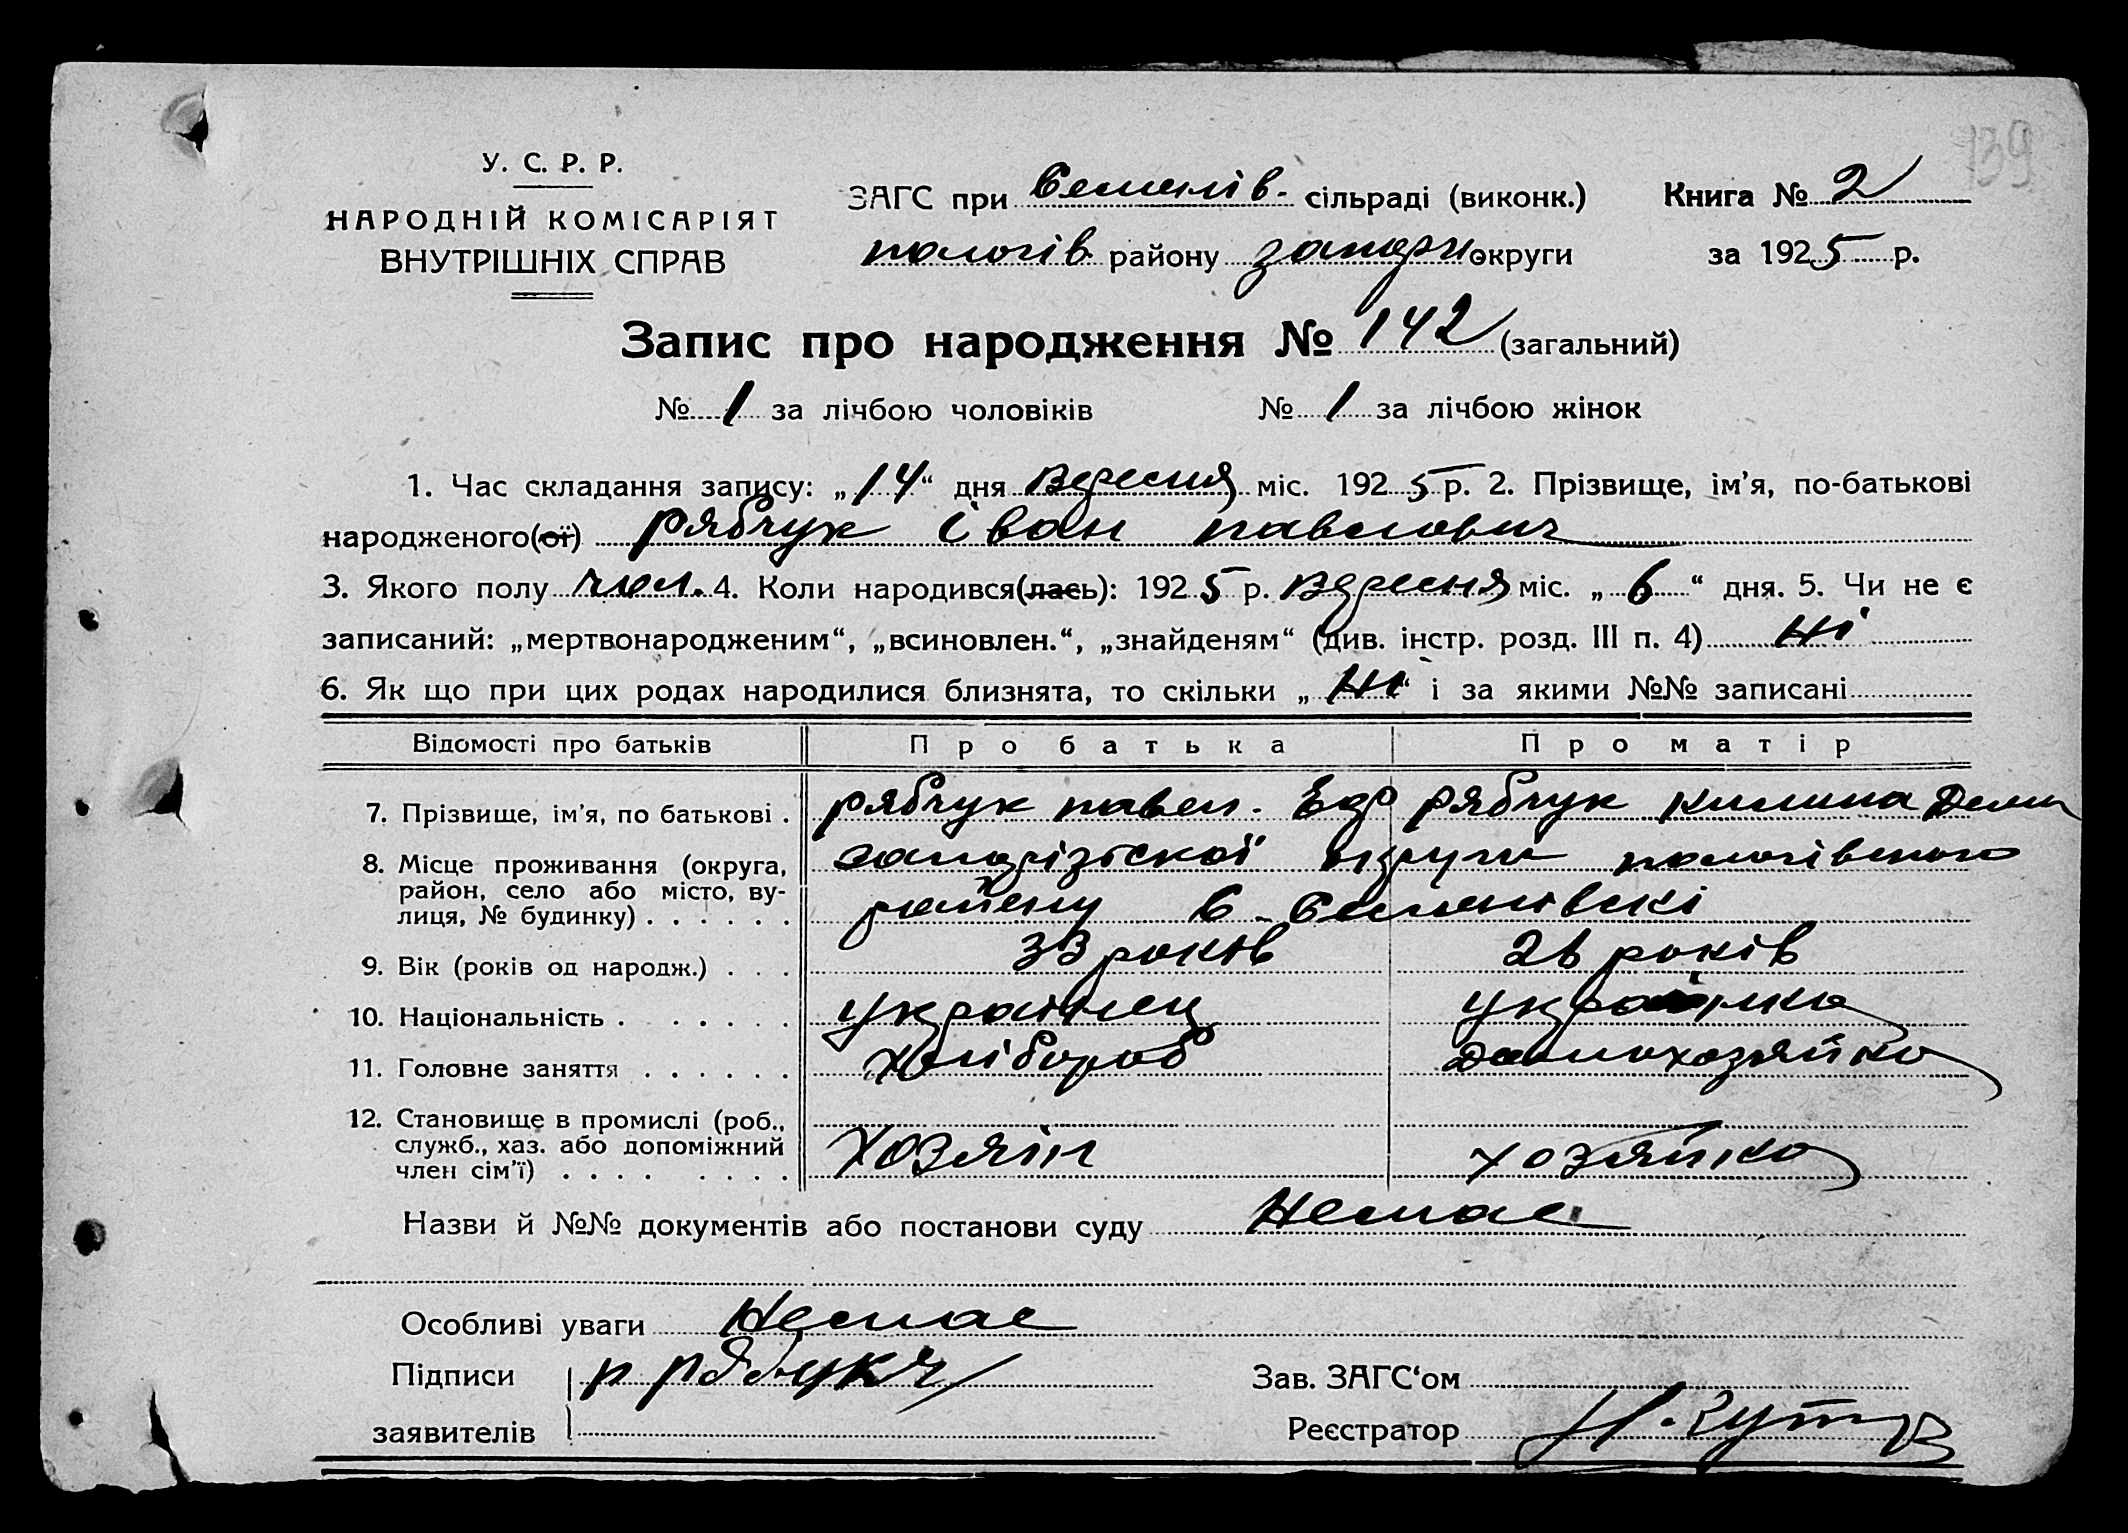 139
У. С. Р. Р.
НАРОДНІЙ КОМІСАРІЯТ
ВНУТРІШНІХ СПРАВ
ЗАГС при Семенів. сільраді (виконк.) Книга № 2
пологів району запори округи за 1925 р.
Запис про народження № 142 (загальний)
№ 1 за лічбою чоловіків № 1 за лічбою жінок
1. Час складання запису: „14“ дня вересня міс. 1925 р. 2. Прізвище, ім'я, по-батькові
народженого(ої) рябчук іван павлович
3. Якого полу чол. 4. Коли народився(лась): 1925 р. вересня міс. „6“ дня. 5. Чи не є
записаний: „мертвонародженим“, „всиновлен.“, „знайденям“ (див. інстр. розд. III п. 4) Ні
6. Як що при цих родах народилися близнята, то скільки „Ні“ і за якими №№ записані
Відомості про батьків Про батька Про матір
7. Прізвище, ім'я, по батькові . рябчук павел. рябчук килина Деми
8. Місце проживання (округа, запорізської округи пологівского
район, село або місто, ву-
лиця, № будинку) . . . . . . району с.
9. Вік (років од народж.) . . . 33 років 26 років
10. Національність . . . . . . українец українка
11. Головне заняття . . . . . . хлібороб домохозяйка
12. Становище в промислі (роб.,
служб., хаз. або допоміжний
член сім'ї) . . . . . . . . хозяін хозяйка
Назви й №№ документів або постанови суду Немае
Особливі уваги Немае
Підписи п рябчук Зав. ЗАГС‘ом
заявителів Реєстратор